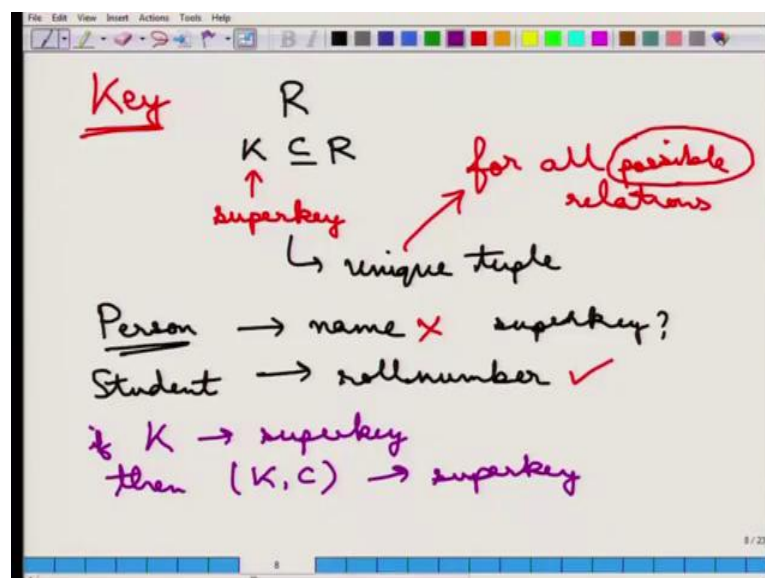 File Edit View Insert Actions Tools Help
Key
R
K ⊆ R
for all possible
relations
superkey
↳ unique tuple
Person → name ✗ superkey?
Student → rollnumber ✓
if K → superkey
then (K, C) → superkey
8 / 23
8